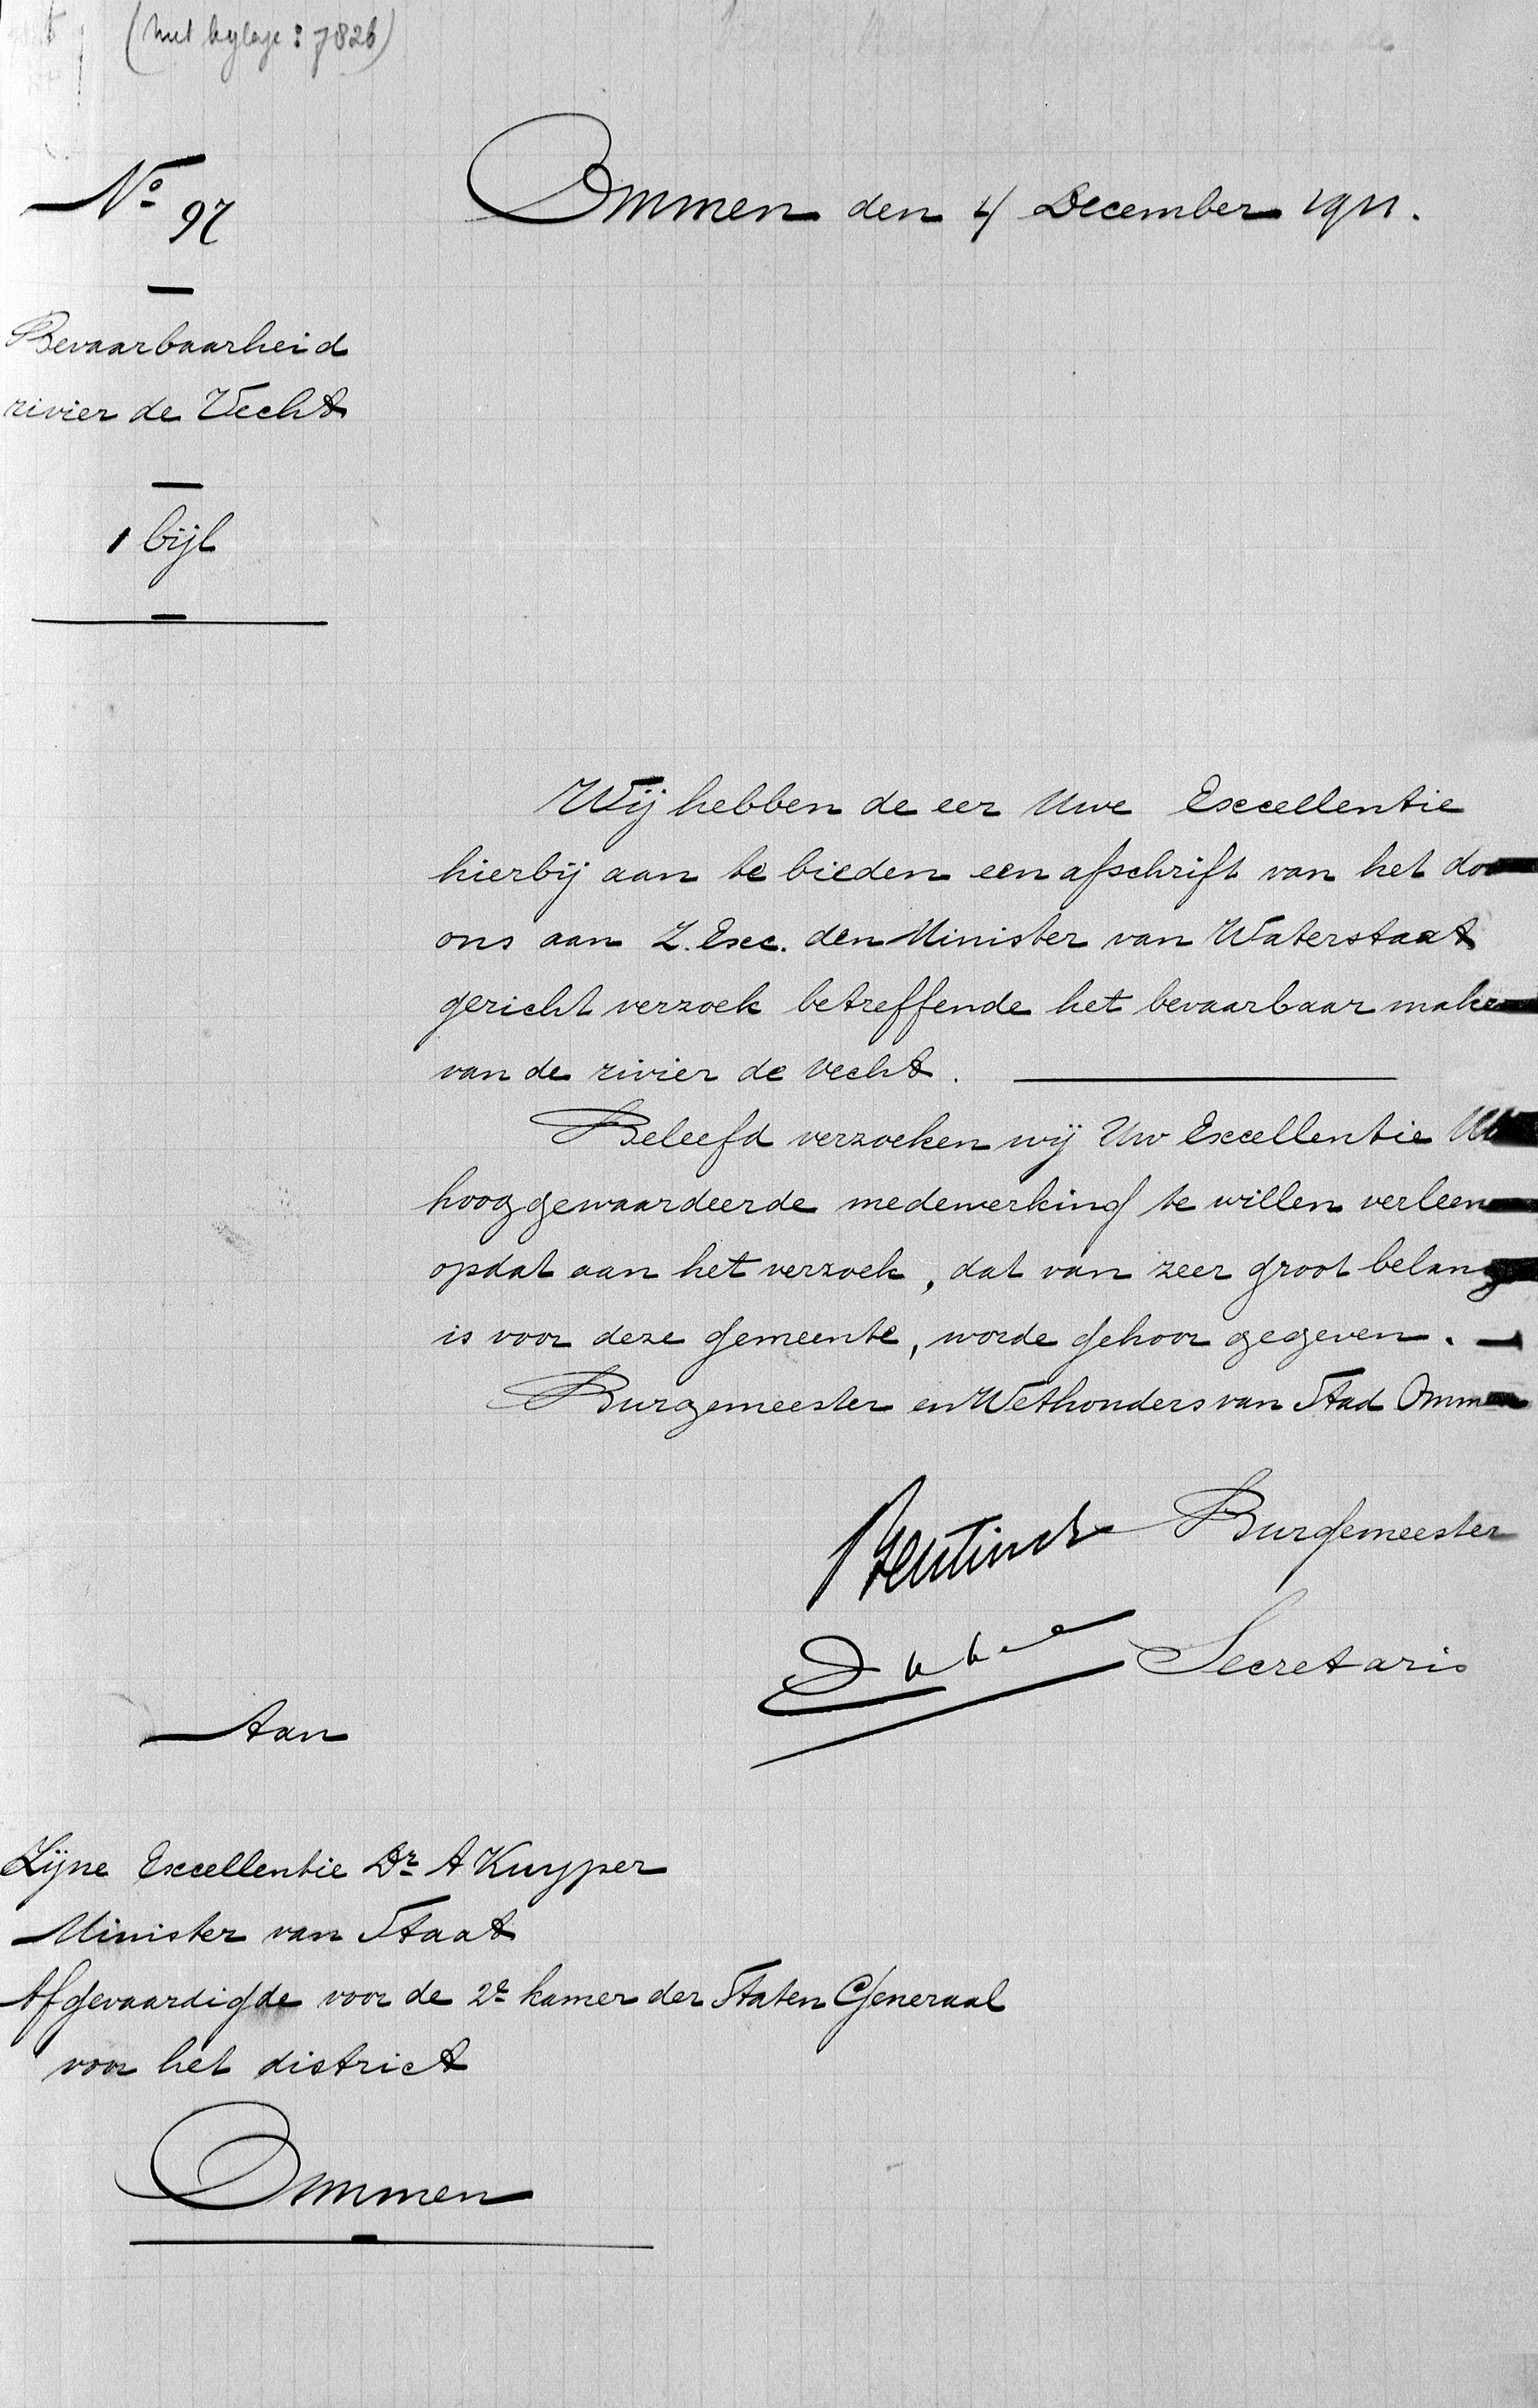 (met bylage: 7826)
No 97
Ommen den 4 December 1911.
Bevaarbaarheid
rivier de Vecht
1 bijl
Wij hebben de eer Uwe Excellentie
hierbij aan te bieden een afschrift van het doo
ons aan Z. Exc. den Minister van Waterstaat
gericht verzoek betreffende het bevaarbaar make
van de rivier de Vecht.
Beleefd verzoeken wij Uw Excellentie Uw
hooggewaardeerde medewerking te willen verleen
opdat aan het verzoek, dat van zeer groot belang
is voor deze gemeente, worde gehoor gegeven.
Burgemeester en Wethouders van Stad Omm
Bentinck Burgemeester
Secretaris
Aan
Zijne Excellentie Dr A Kuyper
Minister van Staat
Afgevaardigde voor de 2e kamer der Staten Generaal
voor het district
Ommen